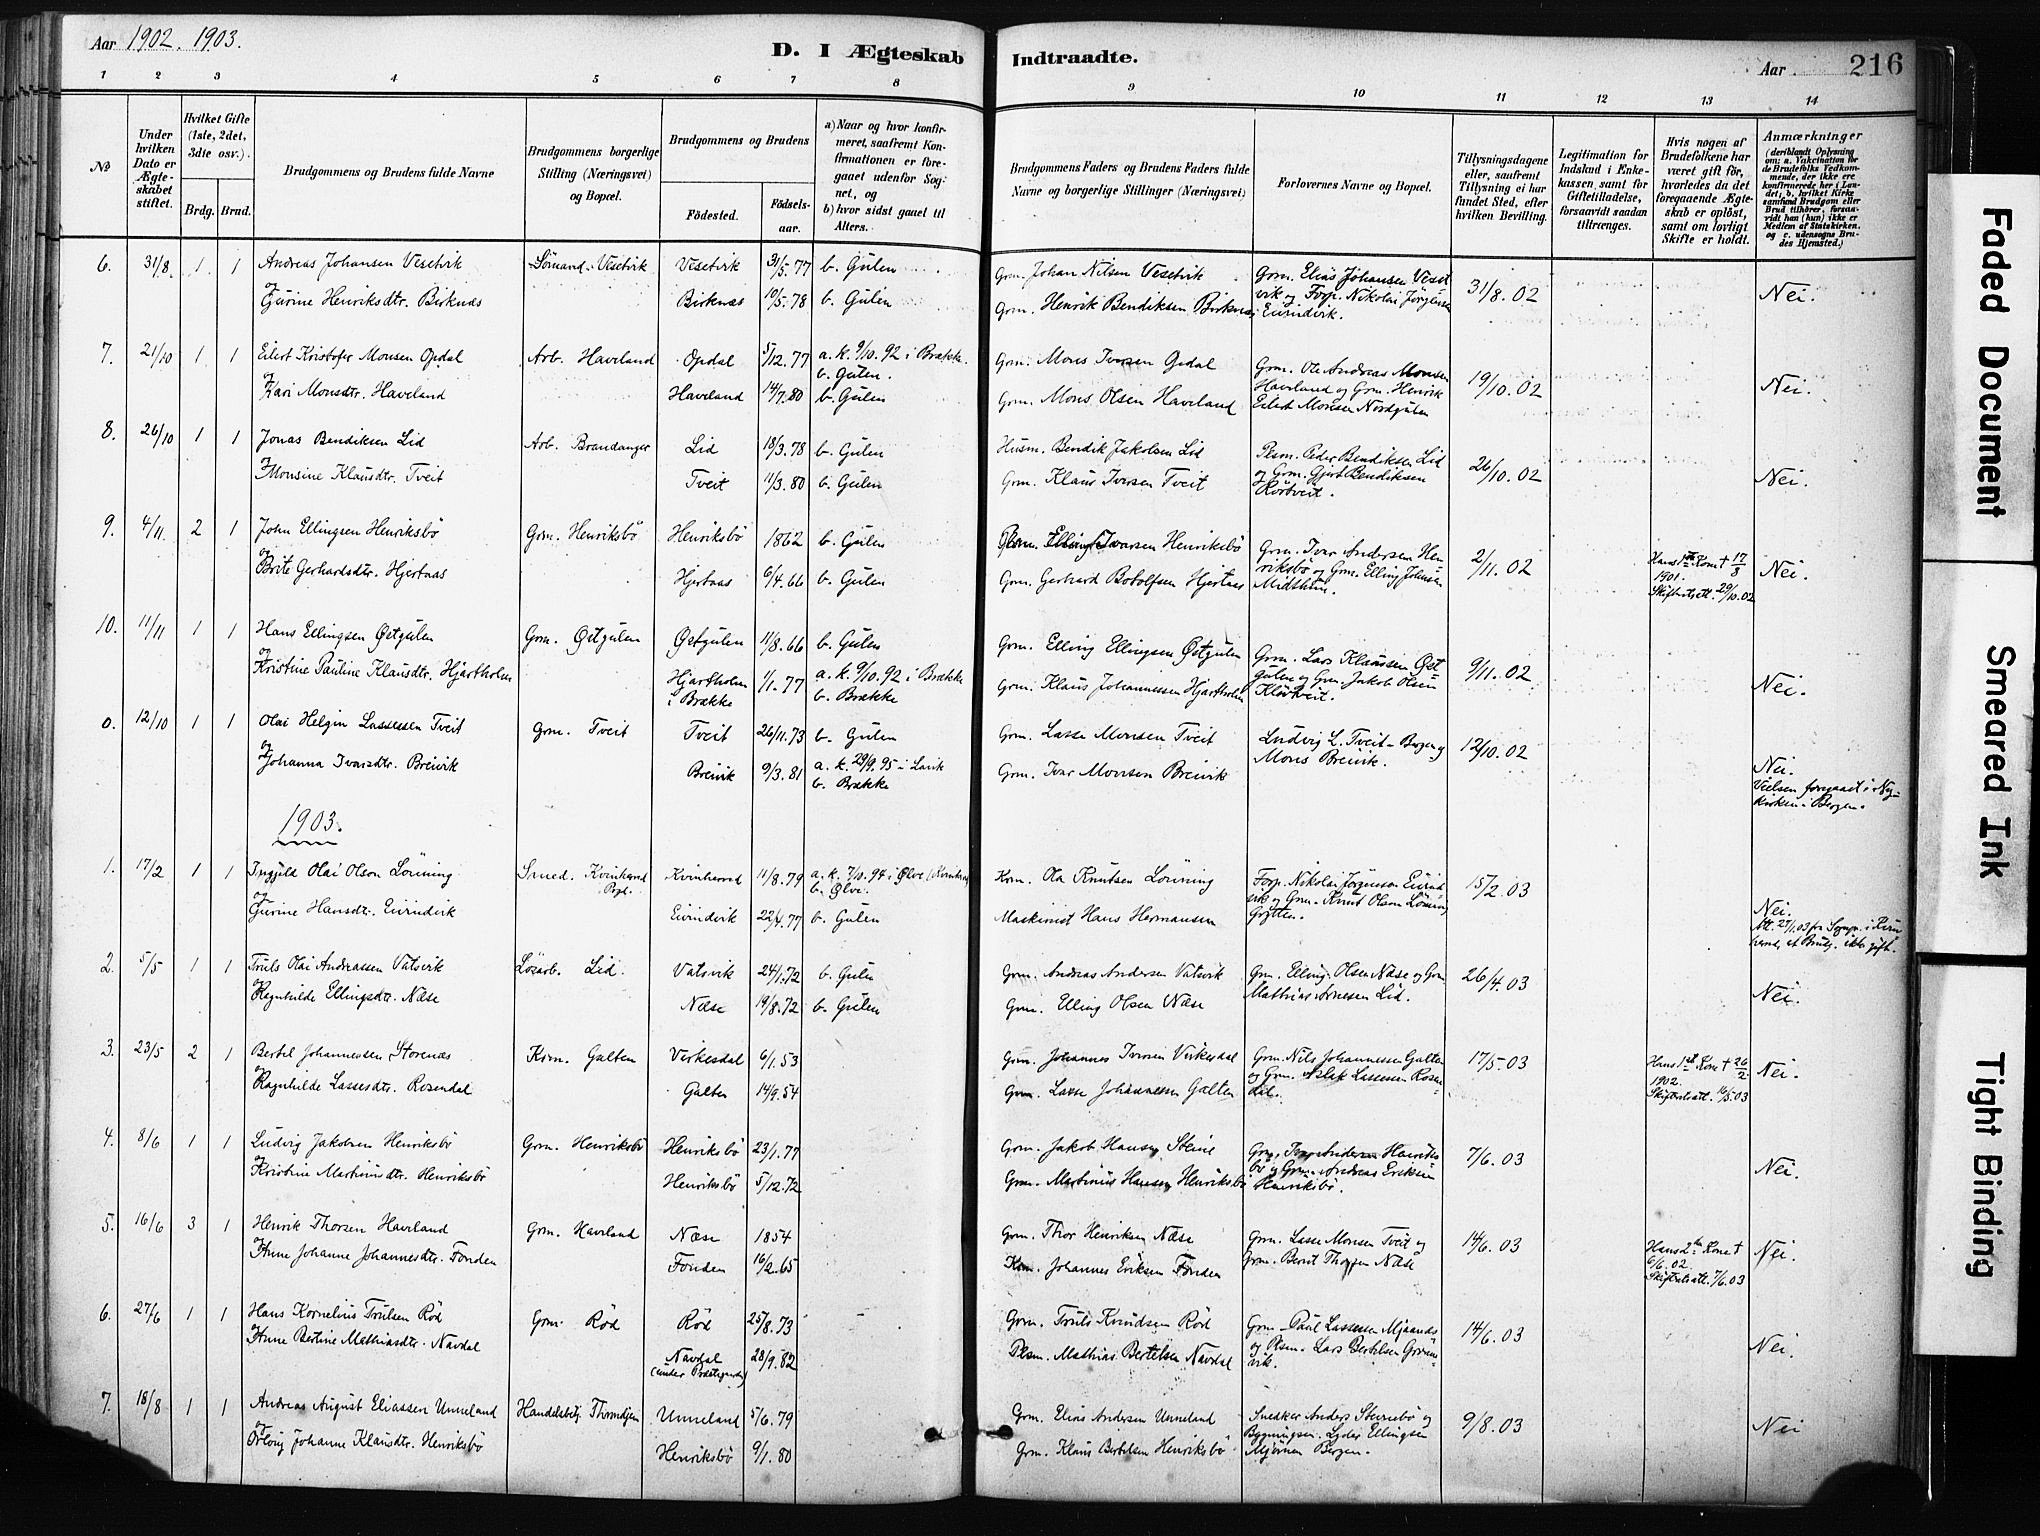 Aar 1902. 1903.
D. I Ægteskab Indtraadte.
Aar
216
1 2 3 4 5 6 7 8 9 10 11 12 13 14
№
Under hvilken Dato er Ægteskabet stiftet.
Hvilket Gifte (1ste, 2det, 3die osv.).
Brdg. Brud.
Brudgommens og Brudens fulde Navne
Brudgommens borgerlige Stilling (Næringsvei) og Bopæl.
Brudgommens og Brudens
Födested.
Födselsaar.
a) Naar og hvor konfirmeret, saafremt Konfirmationen er foregaaet udenfor Sognet, og
b) hvor sidst gaaet til Alters.
Brudgommens Faders og Brudens Faders fulde Navne og borgerlige Stillinger (Næringsvei)
Forlovernes Navne og Bopæl.
Tillysningsdagene eller, saafremt Tillysning ei har fundet Sted, efter hvilken Bevilling.
Legitimation for Indskud i Enkekassen samt for Giftetilladelse, forsaavidt saadan tiltrænges.
Hvis nogen af Brudefolkene har været gift för, hvorledes da det foregaaende Ægteskab er oplöst, samt om lovligt Skifte er holdt.
Anmærkninger (deriblandt Oplysning om: a. Vakcination for de Brudefolks Vedkommende, der ikke ere konfirmerede her i Landet; b. hvilket Kirkesamfund Brudgom eller Brud tilhörer, forsaavidt han (hun) ikke er Medlem af Statskirken, og c. udensogns Brudes Hjemsted.)
6. 31/8 1 1 Andreas Johansen Vesetvik Sømand. Vesetvik Vesetvik 31/5.77 b. Gulen Grm. Johan Nilsen Vesetvik Grm. Elias Johansen Veset
og Gurine Henriksdtr. Birknæs Birknæs 10/5.78 b. Gulen Grm. Henrik Bendiksen Birknæs vik og Forp. Nikolai Jörgensen Eivindvik. 31/8.02 Nei.
7. 21/10 1 1 Eilert Kristofer Monsen Opdal Arb. Haveland Opdal 5/12.77 a. k. 9/10.92 i Brække. b. Gulen. Grm. Mons Iversen Opdal Grm. Ole Andreas Monsen
og Kari Monsdtr. Haveland Haveland 14/7.80 b. Gulen Grm. Mons Olsen Haveland Haveland og Grm. Henrik Eilert Monsen Nordgulen 19/10.02 Nei.
8. 26/10 1 1 Jonas Bendiksen Lid Arb. Brandanger Lid 18/3.78 b. Gulen Husm. Bendik Jakobsen Lid Plsm. Peder Bendiksen Lid
og Monsine Klausdtr. Tveit Tveit 11/3.80 b. Gulen Grm. Klaus Iversen Tveit og Grm. Gjert Bendiksen Rörtveit. 26/10.02 Nei.
9. 4/11 2 1 John Ellingsen Henriksbö Grm. Henriksbö Henriksbö 1862 b. Gulen Elling Ivarsen Henriksbö Grm. Ivar Andersen Hen
og Brite Gerhardsdtr. Hjertaas Hjertaas 6/4.66 b. Gulen Grm. Gerhard Botolfsen Hjertaas riksbö og Grm. Elling Johnsen Midttun. 2/11.02 Hans 1ste Kone † 17/8 1901. Skifteatt. 29/10.02 Nei.
10. 11/11 1 1 Hans Ellingsen Østgulen Grm. Østgulen Østgulen 11/8.66 b. Gulen Grm. Elling Ellingsen Østgulen Grm. Lars Klausen Øst
og Kristine Pauline Klausdtr. Hjartholm Hjartholm i Brække 1/1.77 a. k. 9/10.92 i Brække b. Brække Grm. Klaus Johannessen Hjartholm gulen og Grm. Jakob Olsen Klavtveit. 9/11.02 Nei.
0. 12/10 1 1 Olai Helgin Lassesen Tveit Grm. Tveit Tveit 26/11.73 b. Gulen Grm. Lasse Monsen Tveit Ludvig L. Tveit - Bergen og
og Johanna Ivarsdtr. Breivik Breivik 9/3.81 a. k. 29/9.95 i Lavik b. Brække Grm. Ivar Monsen Breivik Mons Breivik. 12/10.02 Nei. Vielsen foregaaet i Nykirken i Bergen.
1903.
1. 17/2 1 1 Ingjeld Olai Olson Löning Smed. Kvinherred Kvinherred 11/8.79 a. k. 7/10.94 i Ølve b. Ølve. Ole Knutsen Löning Forp. Nikolai Jörgensen Eivind
og Gurine Hansdtr. Eivindvik Eivindvik 22/4.77 b. Gulen Maskinist Hans Hermansen vik og Grm. Knut Olson Löning Grytten. 15/2.03 Nei.
2. 5/5 1 1 Truls Olai Andreassen Vatsvik Lösarb. Lid. Vatsvik 24/1.72 b. Gulen Grm. Andreas Andersen Vatsvik Grm. Elling Olsen Næse og Grm
og Ragnhilde Ellingsdtr. Næse Næse 19/8.72 b. Gulen Grm. Elling Olsen Næse Mathias Arnesen Lid. 26/4.03 Nei.
3. 23/5 2 1 Bertel Johannessen Storenæs Grm. Johannes Iversen Virkesdal Galten Virkesdal 6/1.53 Grm. Nils Johannessen Galten
og Ragnhilde Lassesdtr. Rosendal Galten 14/9.54 Grm. Lasse Johannessen Galten og Grm. Aslak Lassesen Rosendal. 17/5.03 Hans 1ste Kone † 26/2 1902. Skifteatt. 16/5.03 Nei.
4. 8/6 1 1 Ludvig Jakobsen Henriksbö Grm. Henriksbö Henriksbö 23/1.77 Grm. Jakob Hansen Steine Grm. Ivar Andersen Henriks
og Kristine Martinusdtr. Henriksbö Henriksbö 5/12.72 Grm. Martinus Hansen Henriksbö bö og Grm. Andreas Eriksen Henriksbö. 7/6.03 Nei.
5. 16/6 3 1 Henrik Thorsen Haveland Grm. Haveland Næse 1854 Grm. Thor Henriksen Næse Grm. Lasse Monsen Tveit og
og Anne Johanne Johannesdtr. Fonden Fonden 16/2.65 Johannes Eriksen Fonden Grm. Bernt Thorsen Næse 14/6.03 Hans 2den Kone † 6/6.02 Skifteatt. 7/6.03 Nei.
6. 27/6 1 1 Hans Kornelius Trulsen Röd Grm. Röd Röd 25/8.73 Grm. Truls Knudsen Röd Grm. Paul Lassesen Mjaanes
og Anne Bertine Mathiasdtr. Navdal Navdal (under Prestegaarden) 28/9.82 Plsm. Mathias Bertelsen Navdal og Plsm. Lars Bertelsen vik. 14/6.03 Nei.
7. 18/8 1 1 Andreas August Eliassen Unneland Handelsbetj. Unneland 5/6.79 Grm. Elias Andersen Unneland Snedker Anders Stensebö og
og Oloug Johanne Klausdtr. Henriksbö Henriksbö 9/1.80 Grm. Klaus Bertelsen Henriksbö Bygningsm. Lyder Ellingsen Mjömen Bergen. 9/8.03 Nei
Faded Document
Smeared Ink
Tight Binding